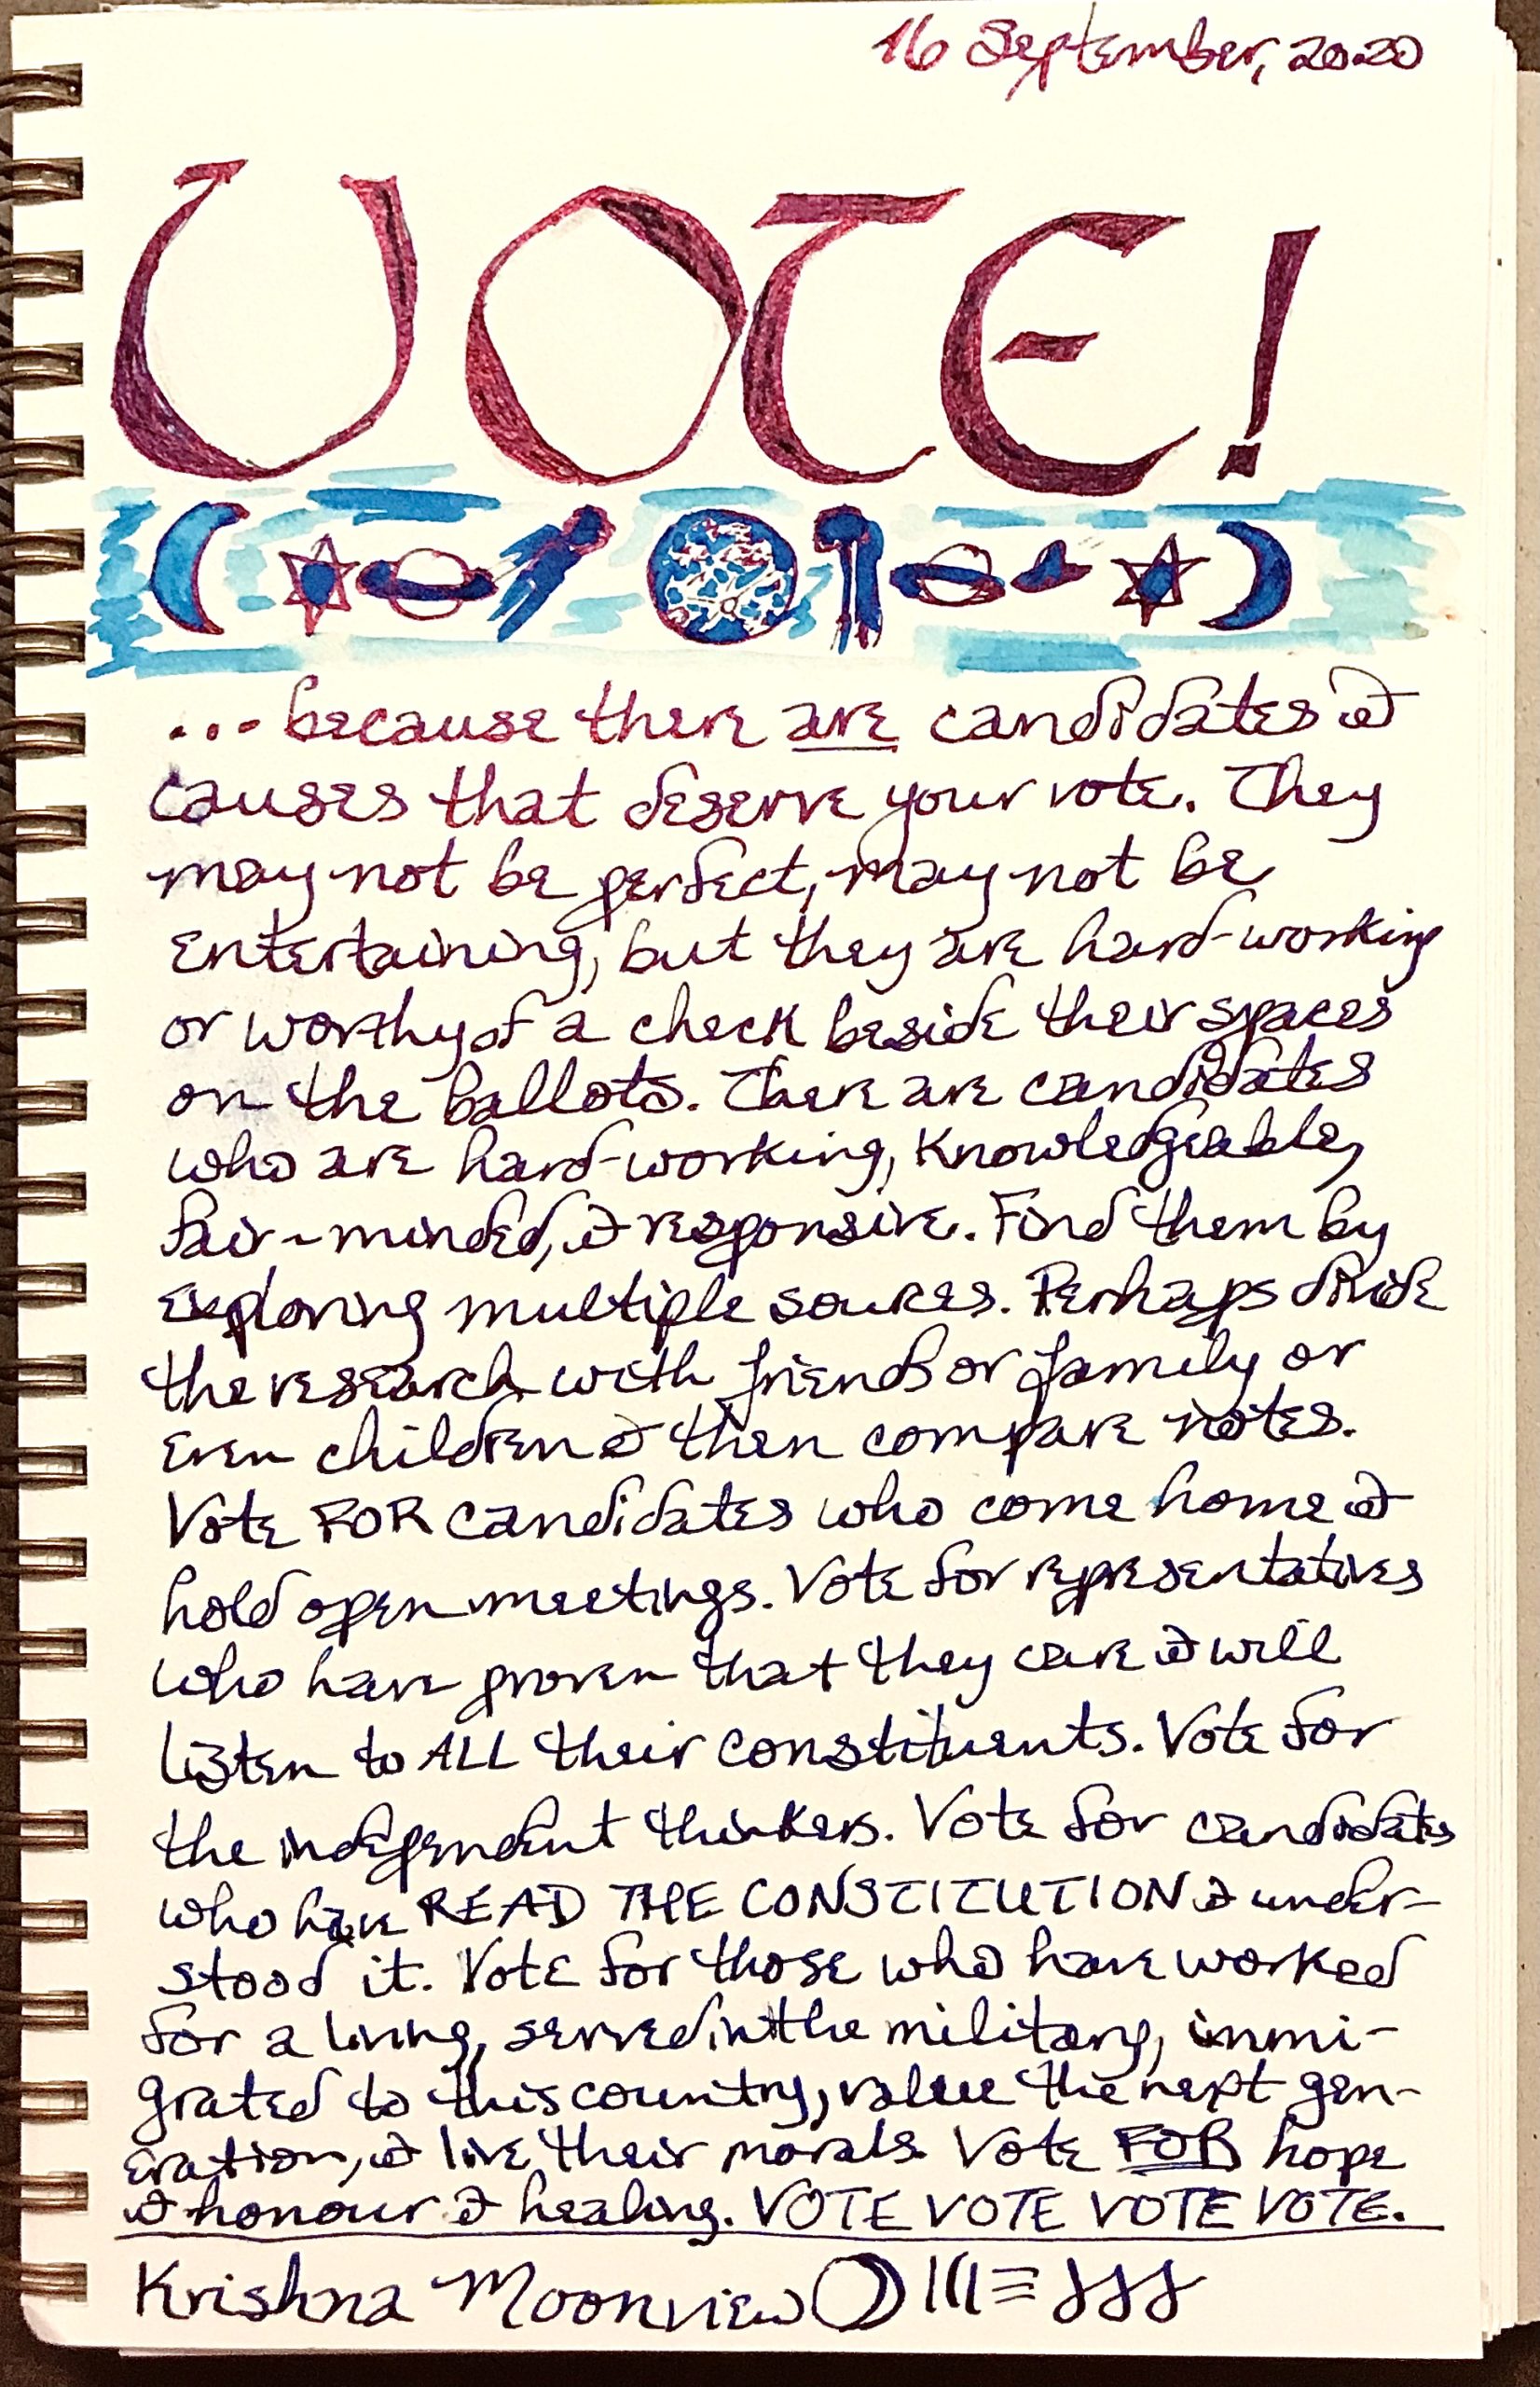 16 September, 2020
VOTE!
... because there are candidates &
causes that deserve your vote. They
may not be perfect, may not be
entertaining, but they are hard-working
or worthy of a check beside their spaces
on the ballots. There are candidates
who are hard-working, knowledgeable,
fair-minded, & responsive. Find them by
exploring multiple sources. Perhaps divide
the research with friends or family or
even children & then compare notes.
Vote FOR candidates who come home &
hold open meetings. Vote for representatives
who have proven that they care & will
listen to ALL their constituents. Vote for
the independent thinkers. Vote for candidates
who have READ THE CONSTITUTION & under-
stood it. Vote for those who have worked
for a living, served in the military, immi-
grated to this country, value the next gen-
eration, & live their morals. Vote FOR hope
& honour & healing. VOTE VOTE VOTE VOTE.
Krishna Moonview